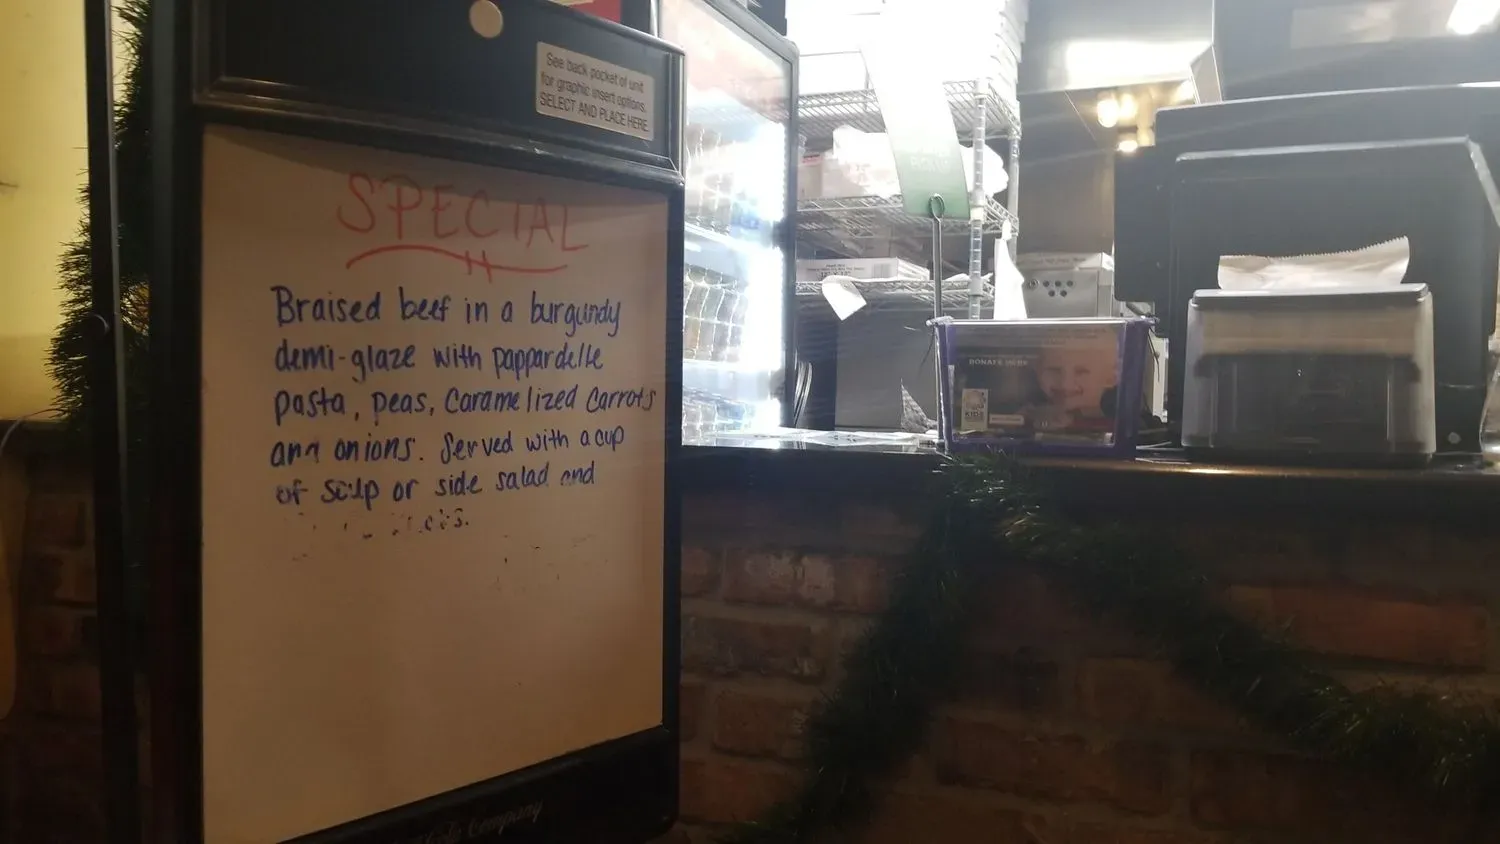 See back pocket of unit
for graphic insert options.
SELECT AND PLACE HERE.
SPECIAL
Braised beef in a burgundy
demi-glaze with pappardelle
pasta, peas, caramelized carrots
and onions. Served with a cup
of soup or side salad and
DONATE HERE
KIDS
Company